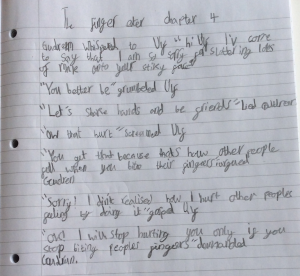 The finger eater chapter 4
whispered to Ulf "hi Ulf I've come
to say that I am so sorry for lots
of onto your
"You better be grumbeled Ulf
"Let's shake hands and be friends" lied
"ow! that hurt" screamed Ulf
"You get that because that's how other people
feel when you bite their fingers
"Sorry! I didnt realised how I hurt other peoples
by doing it" gasped Ulf
"ow! I will stop hurting you only if you
stop biting peoples fingers" demanded